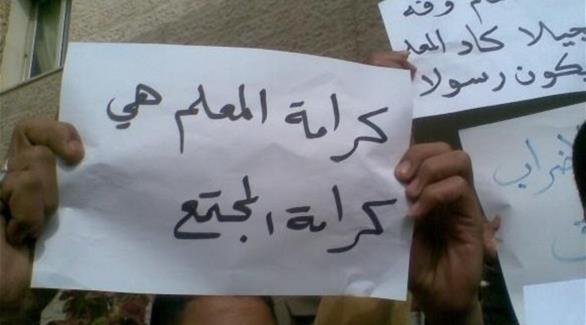 كرامة المعلم هي
كرامة المجتمع
جيلا كاد المعلم
يكون رسولا
ضراب